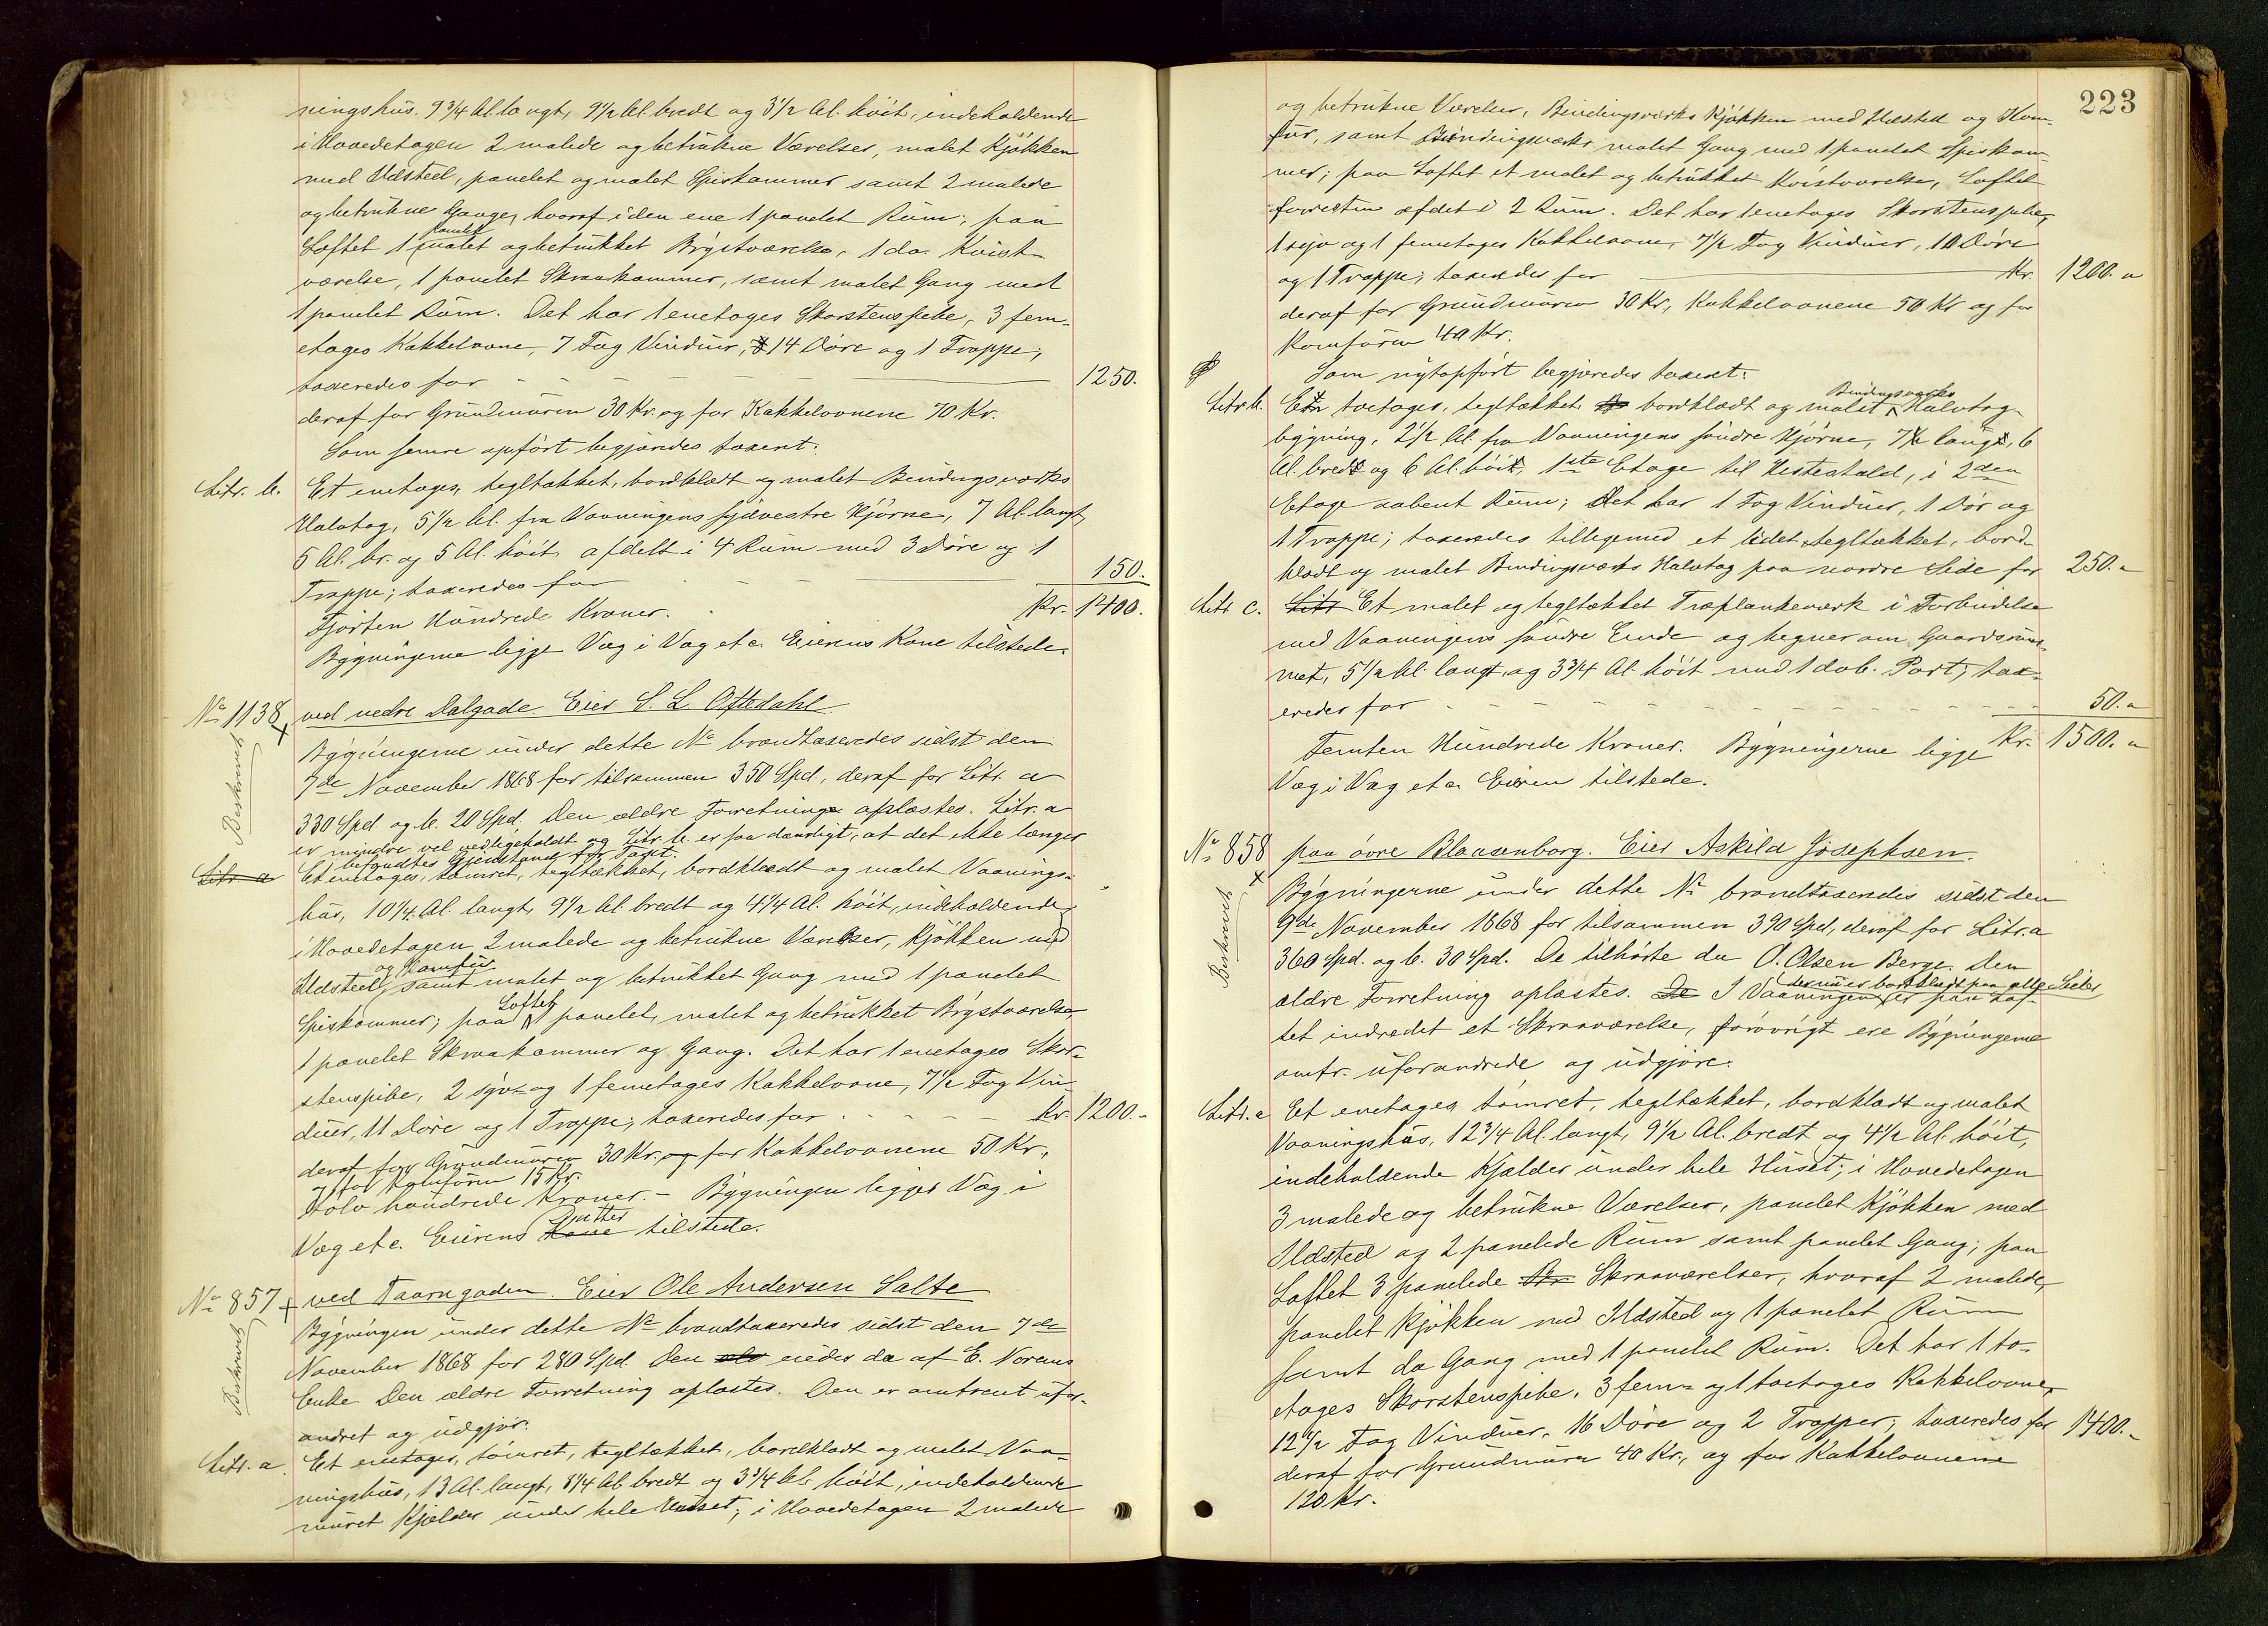 ningshus. 9 3/4 Al. langt, 9 1/2 Al. bredt og 3 1/2 Al. höit, indeholdende
i Hovedetagen 2 malede og betrukne Værelser, malet Kjökken
med Ildsted, panelet og malet Spiskammer samt 2 malede
og betrukne Gange, hvoraf i den ene 1 panelet Rum; paa
Loftet 1 panelet malet og betrukket Brystværelse, 1 do. Kvist-
værelse, 1 panelet Skraakammer, samt malet Gang med
1 panelet Rum. Det har 1 enetages Skorstenspibe, 3 fem-
etages Kakkelovne, 7 Fag Vinduer, 14 Döre og 1 Trappe;
taxeredes for 1250.
deraf for Grundmuren 30 Kr. og for Kakkelovnene 70 Kr.
Som senere opfört begjæredes taxeret:
Litr. b. Et enetages, tegltækket, bordklædt og malet Bindingsværks
Halvtag, 5 1/2 Al. fra Vaaningens sydvestre Hjörne, 7 Al. langt,
5 Al. br. og 5 Al. höit, afdelt i 4 Rum med 3 Döre og 1
Trappe; taxeredes for 150.
Fjorten Hundrede Kroner. Kr. 1400.
Bygningerne ligge Væg i Væg etc. Eierens Kone tilstede.
No 1138 ved nedre Dalgade. Eier S. L. Oftedahl
Beskrevet
Bygningerne under dette No brandtaxeredes sidst den
7de November 1868 for tilsammen 350 Spd., deraf for Litr. a
330 Spd. og b. 20 Spd. Den ældre Forretning oplæstes. Litr. a
er mindre vel vedligeholdt og Litr. b. er saa daarligt, at det ikke længer
befandtes Gjenstand for Taxt.
Litr. a Et enetages, tömret, tegltækket, bordklædt og malet Vaanings-
hus, 10 1/4 Al. langt, 9 1/2 Al. bredt og 4 1/4 Al. höit, indeholdende
i Hovedetagen 2 malede og betrukne Værelser, Kjökken med
Ildsted og Komfur samt malet og betrukket Gang med 1 panelet
Spiskammer; paa Loftet 1 panelet, malet og betrukket Brystværelse
1 panelet Skraakammer og Gang. Det har 1 enetages Skor-
stenspibe, 2 syv- og 1 femetages Kakkelovne, 7 1/2 Fag Vin-
duer, 11 Döre og 1 Trappe; taxeredes for Kr. 1200.-
deraf for Grundmuren 30 Kr. og for Kakkelovnene 50 Kr.,
og for Komfuren 15 Kr.
Tolv hundrede Kroner. - Bygningen ligger Væg i
Væg etc. Eierens Kone Datter tilstede.
No 857 ved Taarngaden. Eier Ole Andersen Salte
Beskrevet
Bygningen under dette No brandtaxeredes sidst den 7de
November 1868 for 280 Spd. Den eiedes da af E. Norems
Enke. Den ældre Forretning oplæstes. Den er omtrent ufor-
andret og udgjör.
Litr. a. Et enetages, tömret, tegltækket, bordklædt og malet Vaa-
ningshus, 13 Al. langt, 8 1/4 Al. bredt og 3 3/4 Al. höit, indeholdende
muret Kjelder under hele Huset; i Hovedetagen 2 malede
223
og betrukne Værelser, Bindingsværks Kjökken med Ildsted og Kom-
fur, samt Bindingsværks malet Gang med 1 panelet Spiskam-
mer; paa Loftet et malet og betrukket Kvistværelse, Loftet
forresten afdelt i 2 Rum. Det har 1 enetages Skorstenspibe,
1 syv og 1 femetages Kakkelovne, 7 1/2 Fag Vinduer, 10 Döre
og 1 Trappe; taxeredes for Kr. 1200.
deraf for Grundmuren 30 Kr., Kakkelovnene 50 Kr. og for
Komfuren 40 Kr.
Som nyopfört begjæredes taxeret:
Litr. b. En toetages, tegltækket, bordklædt og malet Bindingsværks Halvtag-
bygning, 2 1/2 Al. fra Vaaningens söndre Hjörne, 7 lang, 6
Al. bred og 6 Al. höi, 1ste Etage til Hestestald, i 2den
Etage aabent Rum; Det har 1 Fag Vinduer, 1 Dör og
1 Trappe; taxeredes tilligemed et lidet tegltækket, bord-
klædt og malet Bindingsværks Halvtag paa nordre Side for 250.
Litr. c. Litr Et malet og tegltækket Træplankeværk i Forbindelse
med Vaaningens söndre Ende og hegner om Gaardsrum-
met, 5 1/2 Al. langt, og 3 3/4 Al. höit med 1 dob. Port; tax-
eredes for 50.
Femten Hundrede Kroner. Bygningerne ligge Kr. 1500.
Væg i Væg etc. Eieren tilstede.
No 858 paa övre Blaasenborg. Eier Askild Josephsen.
Beskrevet
Bygningerne under dette No brandtaxeredes sidst den
9de November 1868 for tilsammen 390 Spd., deraf for Litr. a
360 Spd. og b. 30 Spd. De tilhörte da O. Olsen Berge. Den
ældre Forretning oplæstes. De I Vaaningen der nu er bordklædt paa alle Sider er paa Lof-
tet indredet et Skraaværelse, forövrigt ere Bygningerne
omtr. uforandrede og udgjöre:
Litr. a Et enetages tömret, tegltækket, bordklædt og malet
Vaaningshus, 12 3/4 Al. langt, 9 1/2 Al. bredt og 4 1/2 Al. höit,
indeholdende Kjælder under hele Huset; i Hovedetagen
3 malede og betrukne Værelser, panelet Kjökken med
Ildsted og 2 panelede Rum samt panelet Gang; paa
Loftet 3 panelede Skraaværelser, hvoraf 2 malede,
panelet Kjökken med Ildsted og 1 panelet Rum
samt do Gang med 1 panelet Rum. Det har 1 to-
etages Skorstenspibe, 3 fem- og 1 toetages Kakkelovne,
12 1/2 Fag Vinduer, 16 Döre og 2 Trapper; taxeredes for 1400.-
deraf for Grundmuren 40 Kr., og for Kakkelovnene
120 Kr.